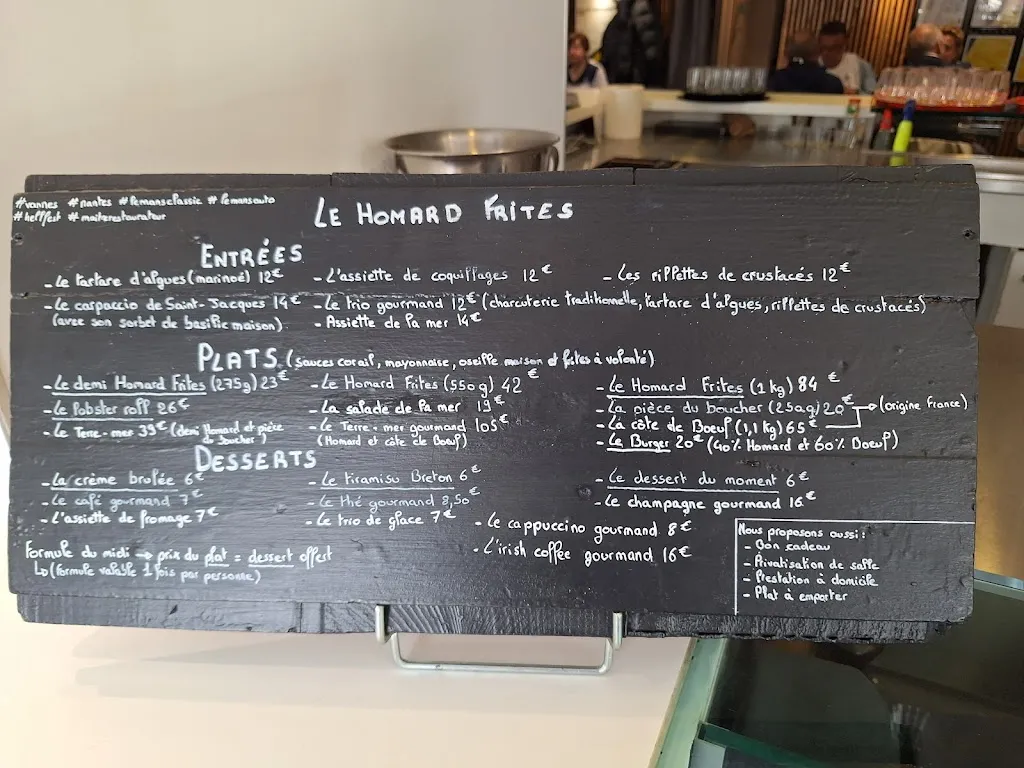 #vannes #nantes #lemansclassic #lemansauto
#hellfest #maitrerestaurateur
LE HOMARD FRITES
ENTRÉES
- Le tartare d'algues (mariné) 12€
- L'assiette de coquillages 12€
- Les rillettes de crustacés 12€
- Le carpaccio de Saint-Jacques 14€
(avec son sorbet de basilic maison)
- Le trio gourmand 12€ (charcuterie traditionnelle, tartare d'algues, rillettes de crustacés)
- Assiette de la mer 14€
PLATS (sauces corail, mayonnaise, oseille maison et frites à volonté)
- Le demi Homard Frites (275g) 23€
- Le Homard Frites (550g) 42€
- Le Homard Frites (1kg) 84€
- Le lobster roll 26€
- La salade de la mer 19€
- La pièce du boucher (250g) 20€ → (origine France)
- Le Terre-mer 39€ (demi Homard et pièce du boucher)
- Le Terre-mer gourmand 105€
(Homard et côte de Boeuf)
- La côte de Boeuf (1,1 kg) 65€
- Le Burger 20€ (40% Homard et 60% Boeuf)
DESSERTS
- La crème brulée 6€
- Le tiramisu Breton 6€
- Le dessert du moment 6€
- Le café gourmand 7€
- Le thé gourmand 8,50€
- Le champagne gourmand 16€
- L'assiette de fromage 7€
- Le trio de glace 7€
- Le cappuccino gourmand 8€
- L'irish coffee gourmand 16€
Formule du midi → prix du plat = dessert offert
↳ (formule valable 1 fois par personne)
Nous proposons aussi :
- Bon cadeau
- Privatisation de salle
- Prestation à domicile
- Plat à emporter